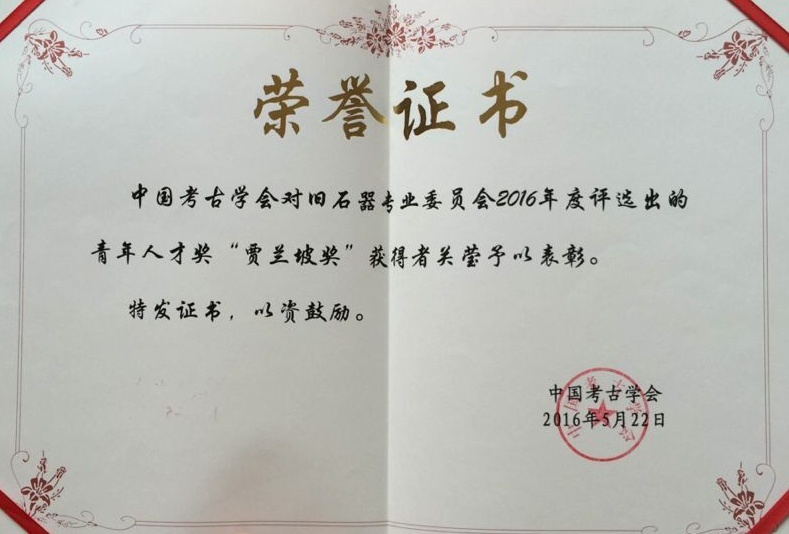 荣誉证书
中国考古学会对旧石器专业委员会2016年度评选出的
青年人才奖“贾兰坡奖”获得者关莹予以表彰。
特发证书，以资鼓励。
中国考古学会
2016年5月22日
中国考古学会